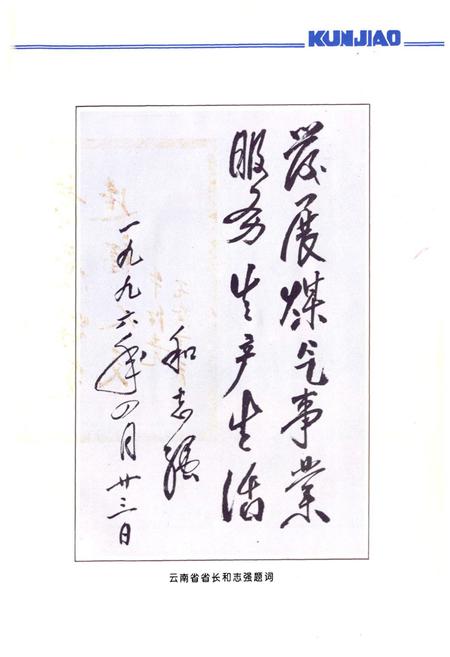 KUNJIAO
发展煤气事业
服务生产生活
和志强
一九九六年四月廿三日
云南省省长和志强题词